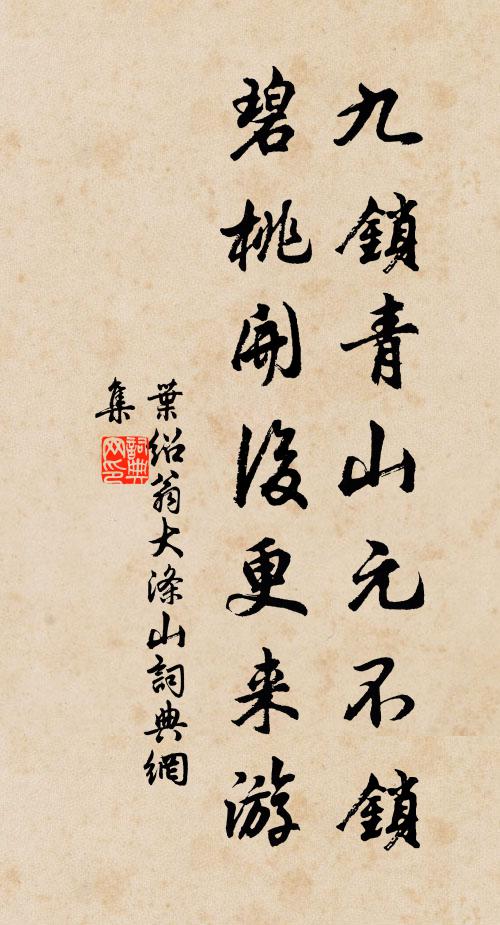 九鎖青山元不鎖
碧桃開後更来游
葉紹翁大滌山詞典網
集
詞典网印